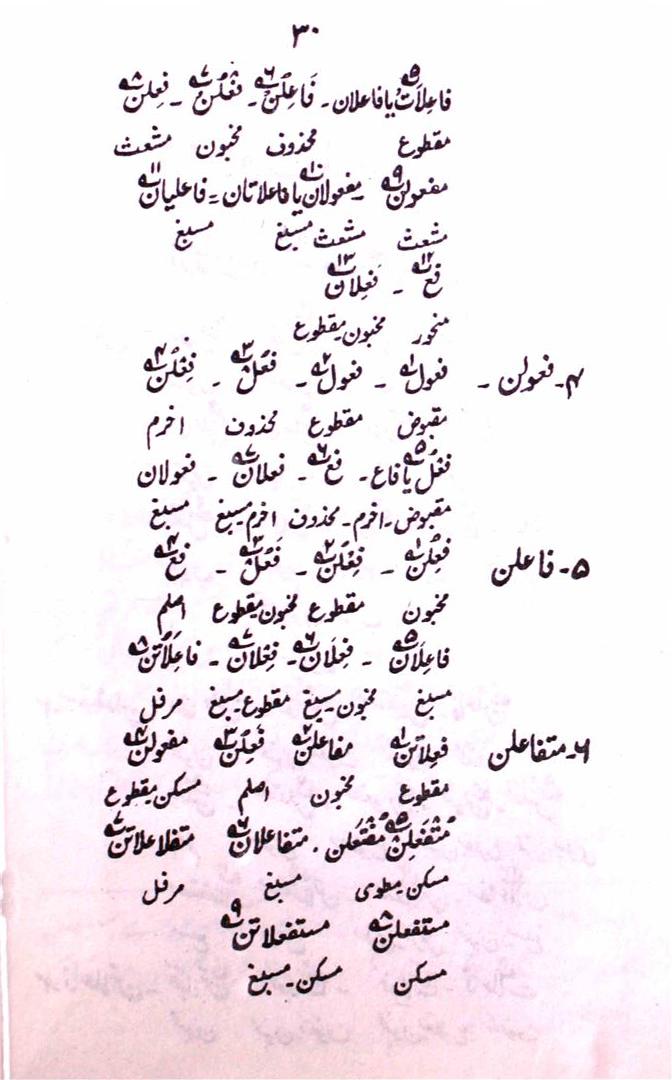 ۳۰
فاعِلاتُ۵ یا فاعلان ۔ فَاعِلُن۶ ۔ فَعِلُن۷ ۔ فعِلن۸
مقطوع محذوف مخبون مشعث
مفعولن۹ ۔ مفعولان۱۰ یا فاعلاتان ۔ فاعلیان۱۱
مشعث مشعث مسبغ مسبغ
فع۱۲ ۔ فَعِلان۱۳
منحور مخبون۔مقطوع
۴۔ فعولن ۔ فعولُ۱ ۔ فعول۲ ۔ فَعَل۳ ۔ فعْلن۴
مقبوض مقطوع محذوف اخرم
فَعْلُ۵ یا فاع ۔ فع۶ ۔ فعلان۷ ۔ فعولان
مقبوض۔اخرم۔ محذوف اخرم۔مسبغ مسبغ
۵۔ فاعلن فَعِلُن۱ ۔ فِعْلُن۲ ۔ فَعَل۳ ۔ فَع۴
مخبون مقطوع مخبون۔مقطوع اصلم
فاعِلان۵ ۔ فعِلان۶ ۔ فعْلان۷ ۔ فاعِلَاتن۸
مسبغ مخبون۔مسبغ مقطوع۔مسبغ مرفل
۶۔ متفاعلن فعِلاتن۱ مفاعلن۲ فَعْلن۳ مفعولن۴
مقطوع مخبون اصلم مسکن۔مقطوع
مُتَفْعِلُن۵ مُفْتَعِلن ۔ متفاعلان۶ متفاعلاتن۷
مسکن۔مطوی مسبغ مرفل
مستفعلن۸ مستفعلاتن۹
مسکن مسکن۔مسبغ